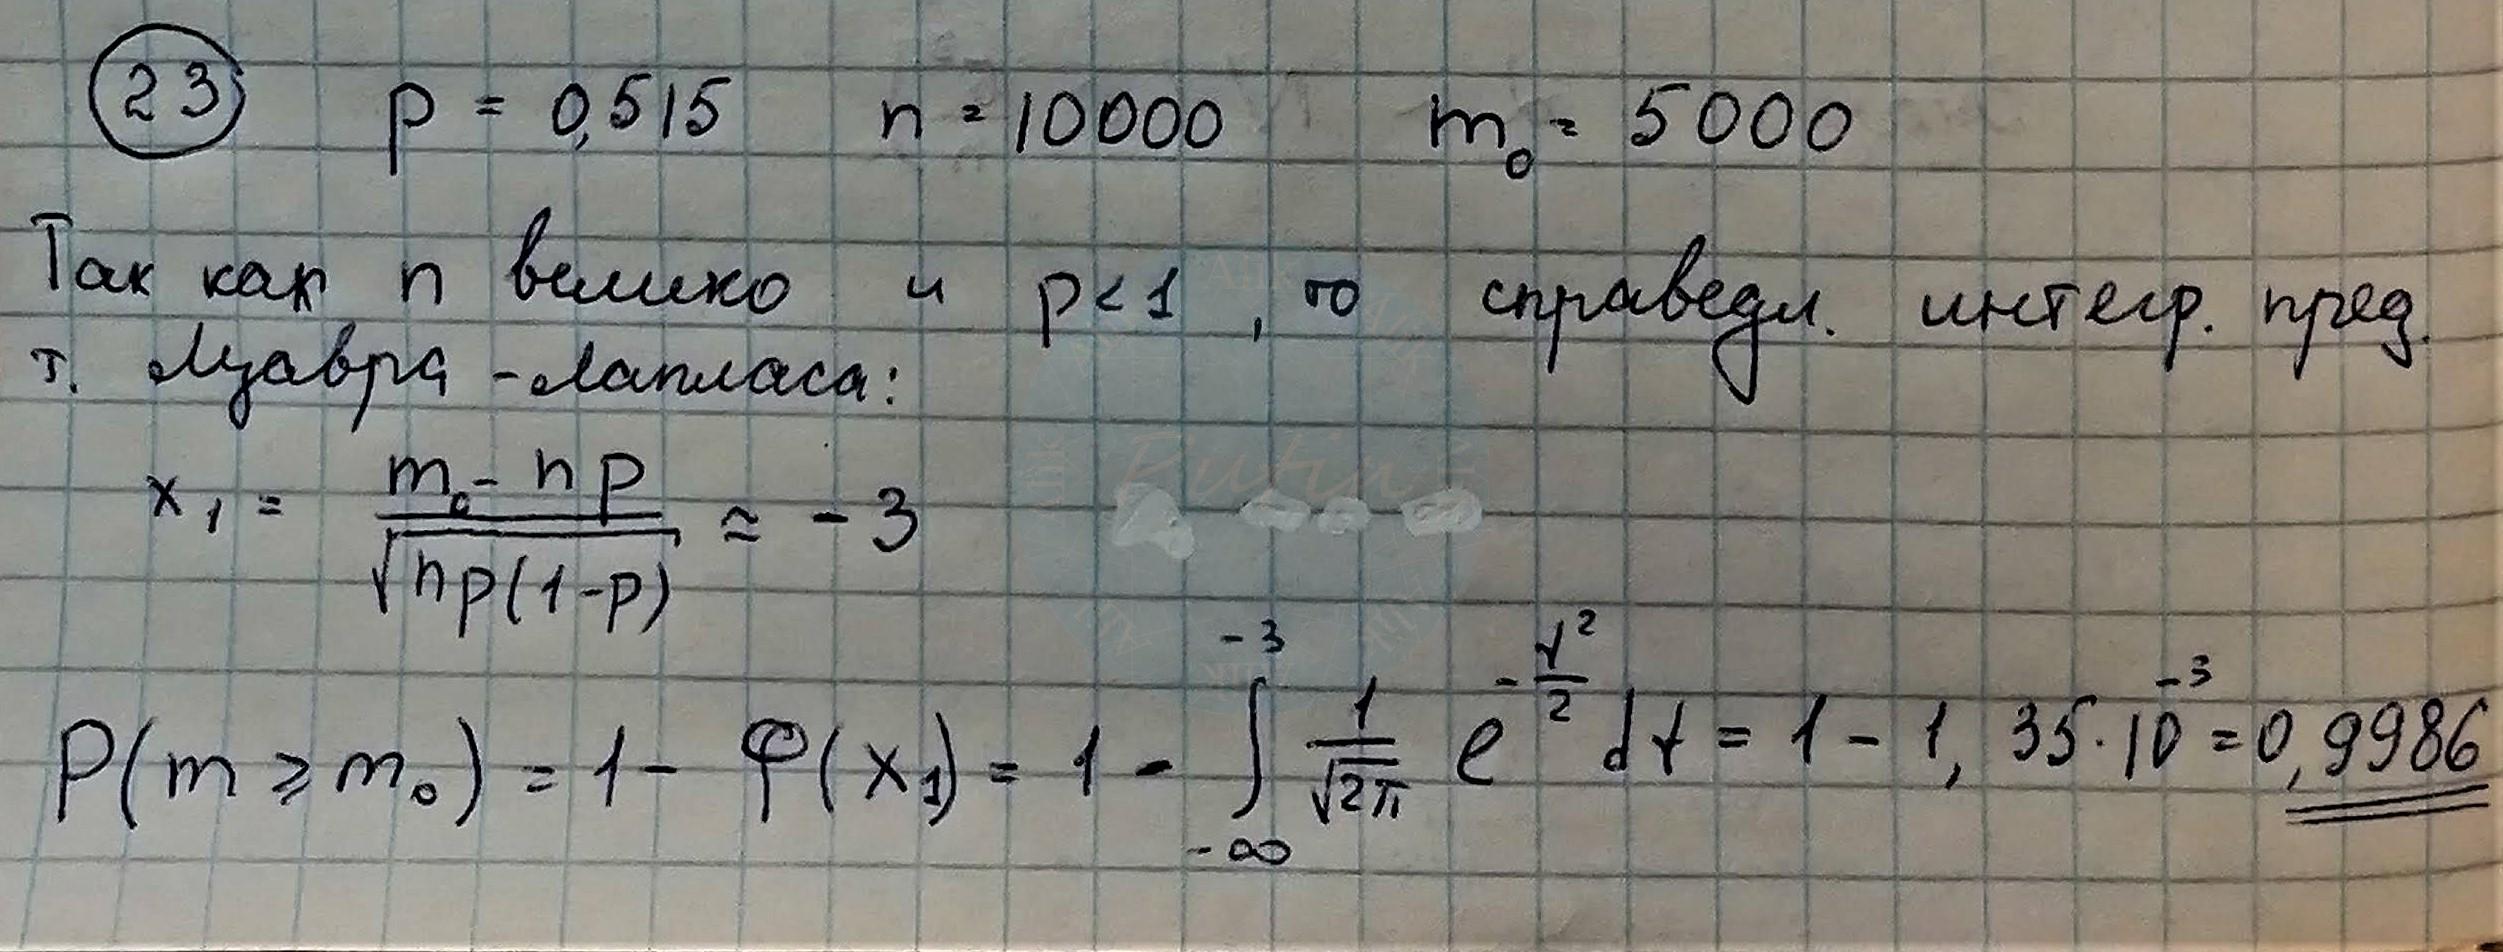 23 p = 0,515 n = 10000 m₀ = 5000
Так как n велико и p < 1, то справедл. интегр. пред.
т. Муавра - Лапласа:
x₁ = (m₀ - np) / √(np(1-p)) ≈ -3
P(m ⩾ m₀) = 1 - φ(x₁) = 1 - ∫_{-∞}^{-3} 1/√(2π) e^{-t²/2} dt = 1 - 1,35·10⁻³ = 0,9986